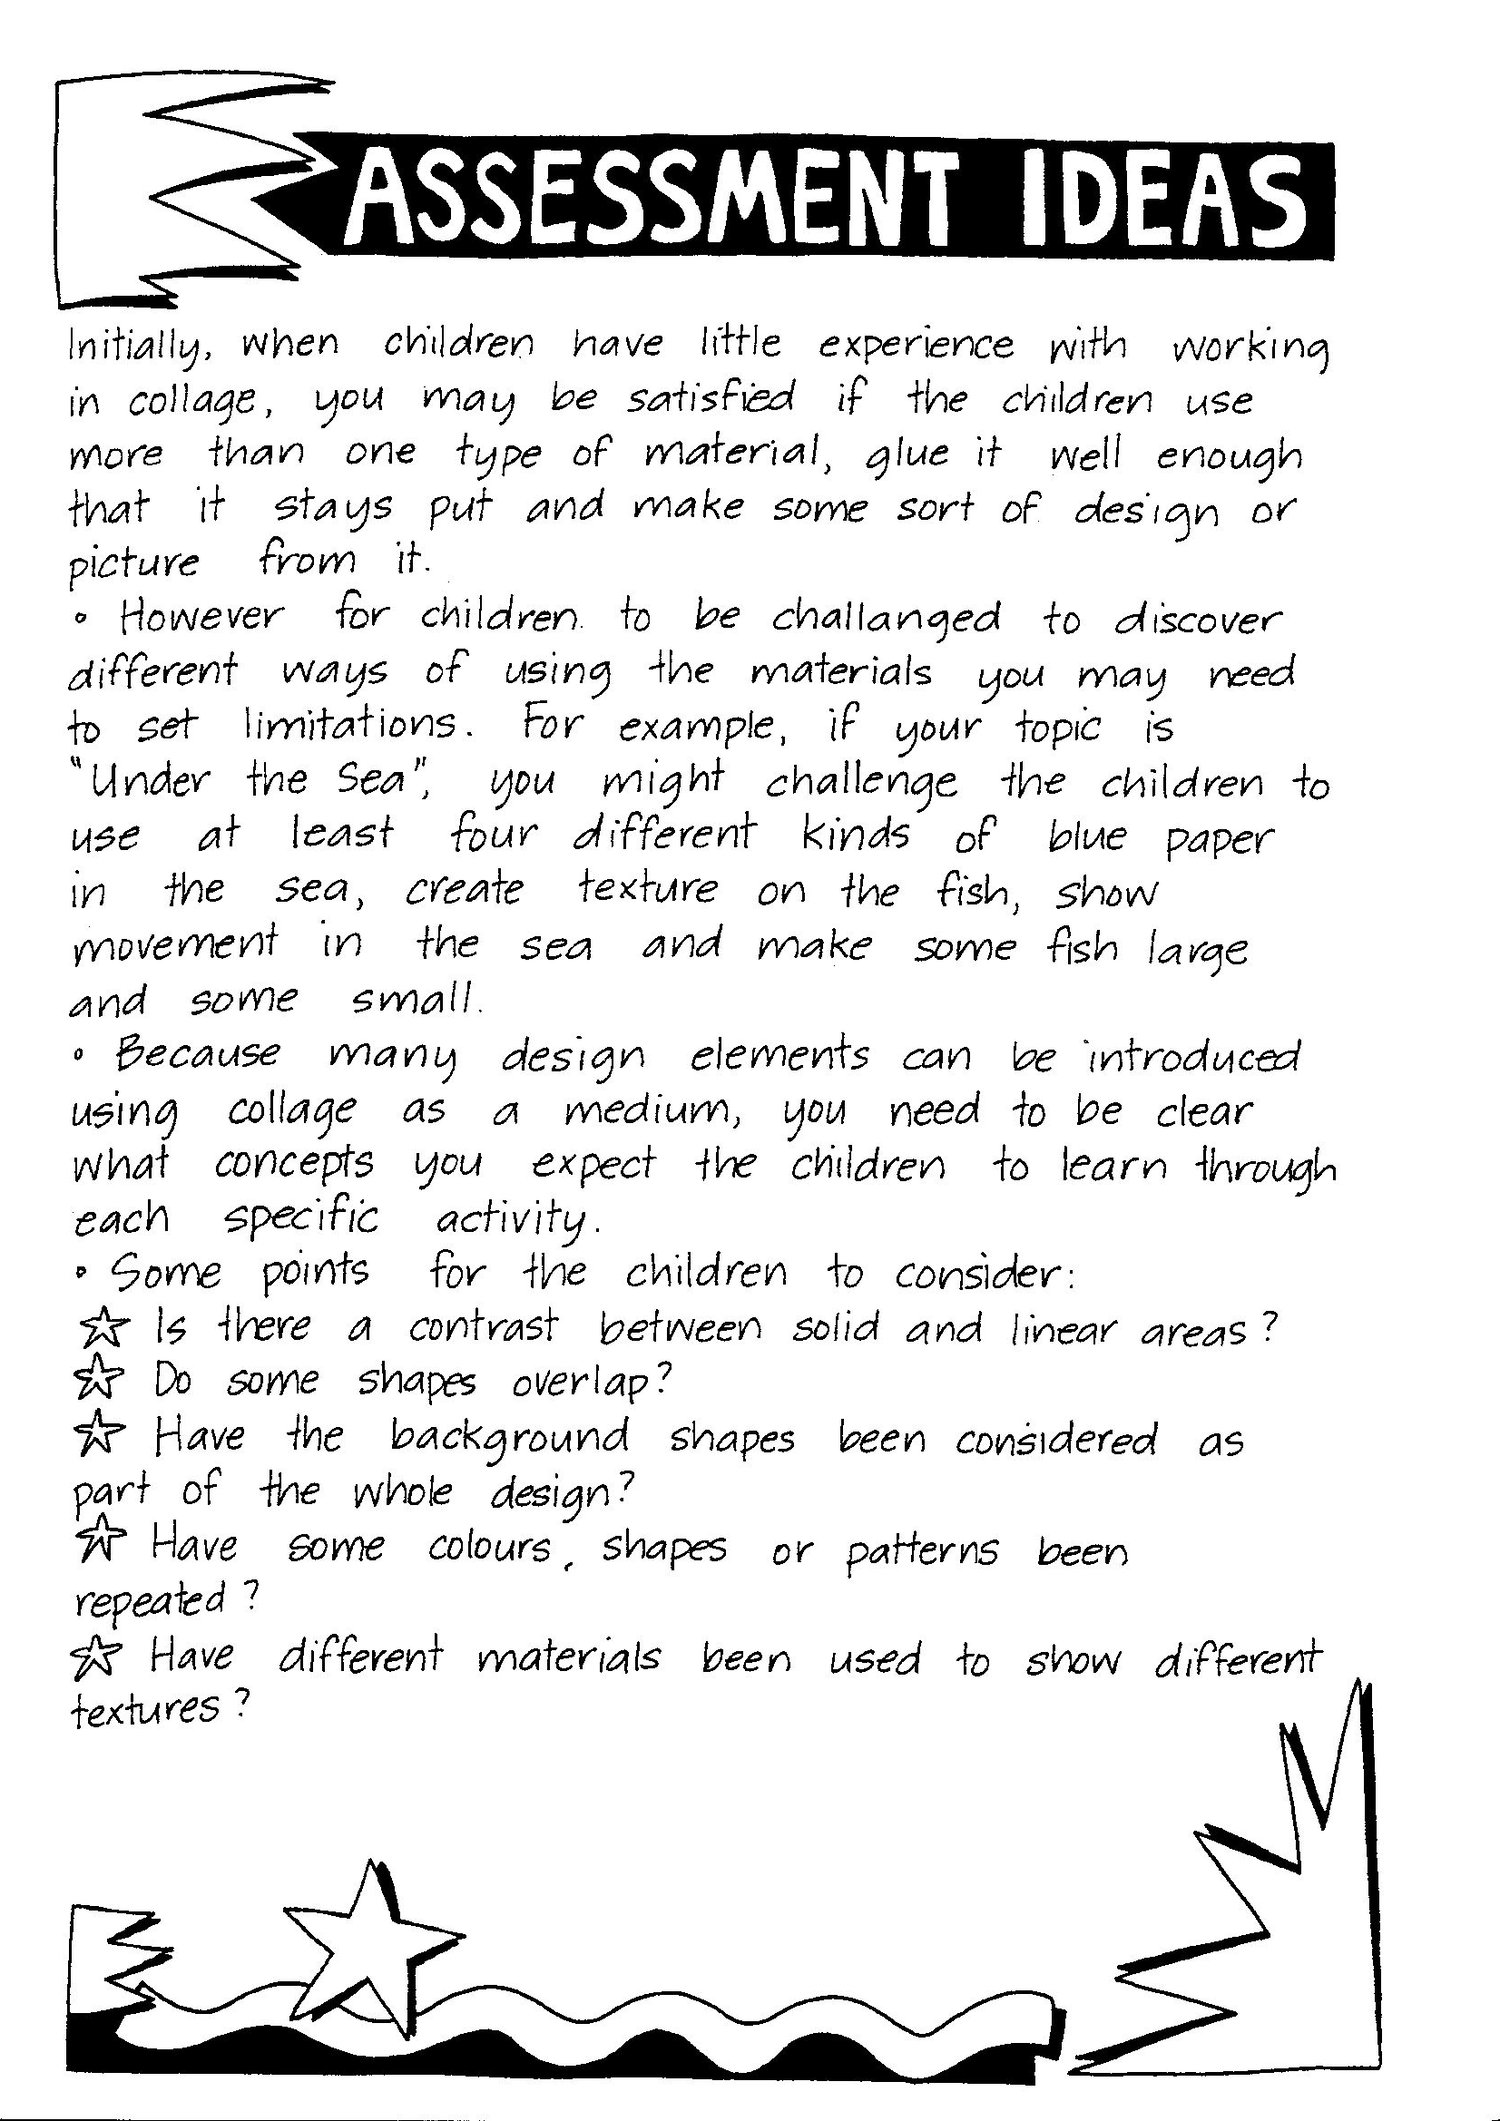 ASSESSMENT IDEAS
Initially, when children have little experience with working
in collage, you may be satisfied if the children use
more than one type of material, glue it well enough
that it stays put and make some sort of design or
picture from it.
• However for children to be challanged to discover
different ways of using the materials you may need
to set limitations. For example, if your topic is
"Under the Sea", you might challenge the children to
use at least four different kinds of blue paper
in the sea, create texture on the fish, show
movement in the sea and make some fish large
and some small.
• Because many design elements can be introduced
using collage as a medium, you need to be clear
what concepts you expect the children to learn through
each specific activity.
• Some points for the children to consider:
☆ Is there a contrast between solid and linear areas?
☆ Do some shapes overlap?
☆ Have the background shapes been considered as
part of the whole design?
☆ Have some colours, shapes or patterns been
repeated?
☆ Have different materials been used to show different
textures?